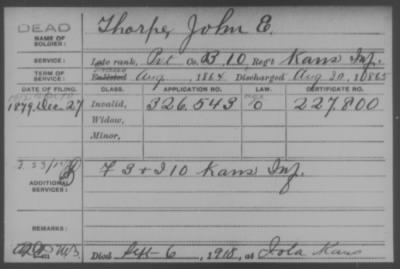 DEAD
NAME OF SOLDIER: Thorpe, John E.
SERVICE: Late rank, Pvt Co. B 10, Reg't Kans Inf.
TERM OF SERVICE: Enlisted Aug, 1864. Discharged Aug 30, 1865
DATE OF FILING. CLASS. APPLICATION NO. LAW. CERTIFICATE NO.
1879, Dec. 27 Invalid, 326.543 227,800
Widow,
Minor,
ADDITIONAL SERVICES: F 3 & I 10 Kans Inf.
REMARKS:
Died Sept 6, 1918, at Iola Kans